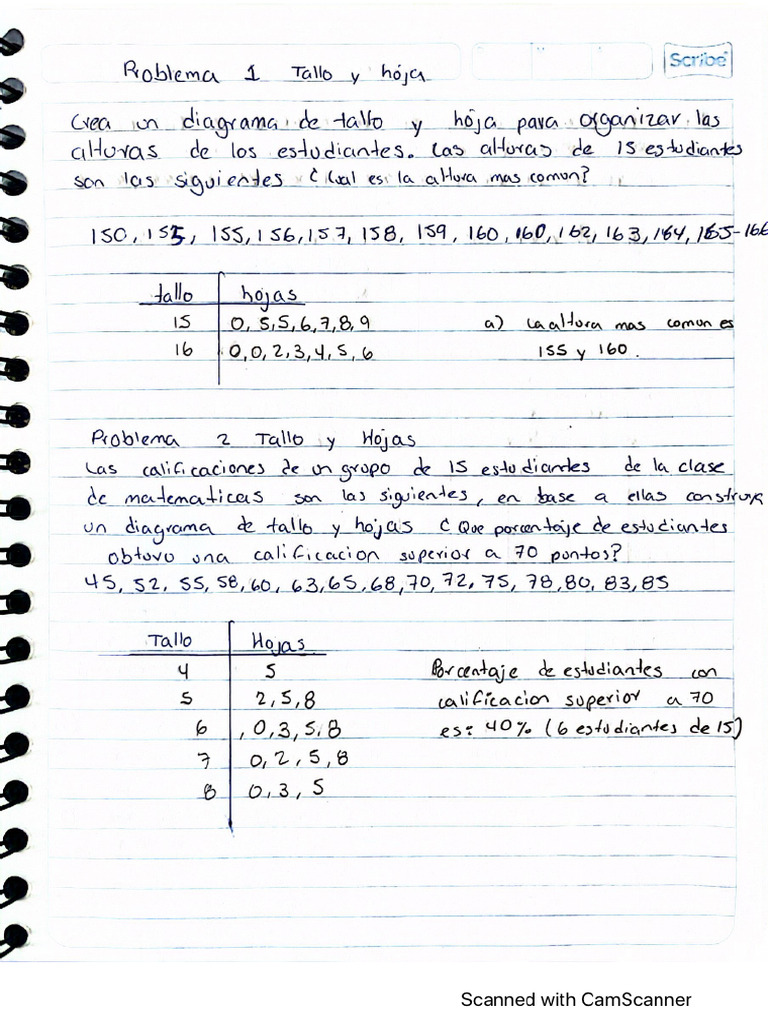 Problema 1 Tallo y hója
Scribe
Crea un diagrama de tallo y hója para organizar las
alturas de los estudiantes. Las alturas de 15 estudiantes
son las siguientes ¿Cual es la altura mas comun?
150, 155, 155, 156, 157, 158, 159, 160, 160, 162, 163, 164, 165-166
tallo hojas
15 0, 5, 5, 6, 7, 8, 9 a) La altura mas comun es
16 0, 0, 2, 3, 4, 5, 6 155 y 160.
Problema 2 Tallo y Hojas
Las calificaciones de un grupo de 15 estudiantes de la clase
de matematicas son las siguientes, en base a ellas construya
un diagrama de tallo y hojas ¿Que porcentaje de estudiantes
obtuvo una calificacion superior a 70 puntos?
45, 52, 55, 58, 60, 63, 65, 68, 70, 72, 75, 78, 80, 83, 85
Tallo Hojas
4 5 Porcentaje de estudiantes con
5 2, 5, 8 calificacion superior a 70
6 , 0, 3, 5, 8 es: 40% (6 estudiantes de 15)
7 0, 2, 5, 8
8 0, 3, 5
Scanned with CamScanner